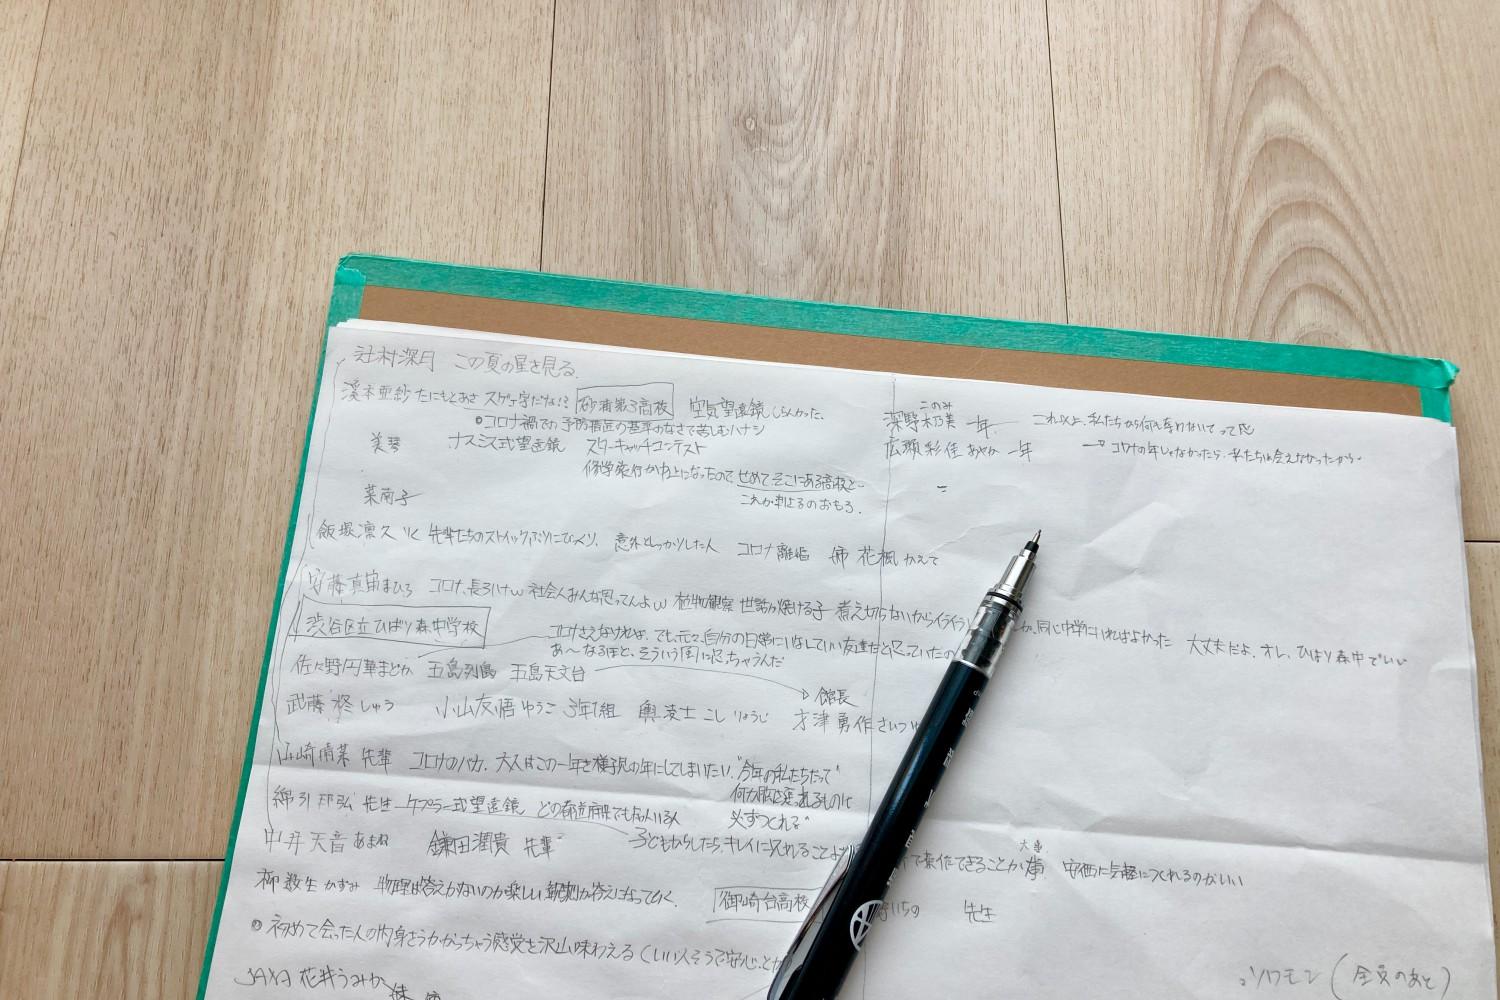 辻村深月 この夏の星を見る.
溪本亜紗 たにもとあさ スゲェ字だな!? 砂浦第3高校 空気望遠鏡 しらんかった.
コロナ禍での予防措置の基準のなさで苦しむハナシ
美琴 ナスミス式望遠鏡 スターキャッチコンテスト
修学旅行が中止になったので、せめてそこにある高校と…
これが刺さるのおもろ.
菜南子
深野木乃美 このみ 一年 これ以上、私たちから何も奪わないでって
広瀬彩佳 あやか 一年 コロナの年じゃなかったら、私たちは会えなかったから…
飯塚凛久 りく 先輩たちのストイックぶりにびっくり、意外としっかりした人 コロナ離婚 姉 花楓 かえで
安藤真宙 まひろ コロナ、長引けw 社会人みんな思ってんよw 植物観察 世話が焼ける子 煮え切らないからイライラ
同じ中学にいればよかった 大丈夫だよ、オレ、ひばり森中でいい
渋谷区立ひばり森中学校
コロナさえなければ、でも、元々、自分の日常にいなくていい友達だと思っていたの
あ〜なるほど、そういう風に思っちゃうんだ
佐々野円華 まどか 五島列島 五島天文台
館長
武藤柊 しゅう 小山友悟 ゆうご 3年1組 輿凌士 こし りょうじ 才津勇作 さいつ
山崎晴菜 先輩 コロナのバカ. 大人はこの一年を様子見の年にしてしまいたい. "今年の私たちだって"
必ずつくれる"
綿引邦弘 先生 ケプラー式望遠鏡 どの都道府県でも友人いる人
中井天音 あまね 鎌田潤貴 先輩 子どもからしたら、キレイに見れることより
で操作できることが大事 安価に気軽につくれるのがいい
柳数生 かずみ 物理は答えがないのが楽しい 御崎台高校
先生
初めて会った人の内身をうかがっちゃう感覚を沢山味わえる(いい人そうで安心、とか
JAXA 花井うみか
ソロモン(全員のあと)